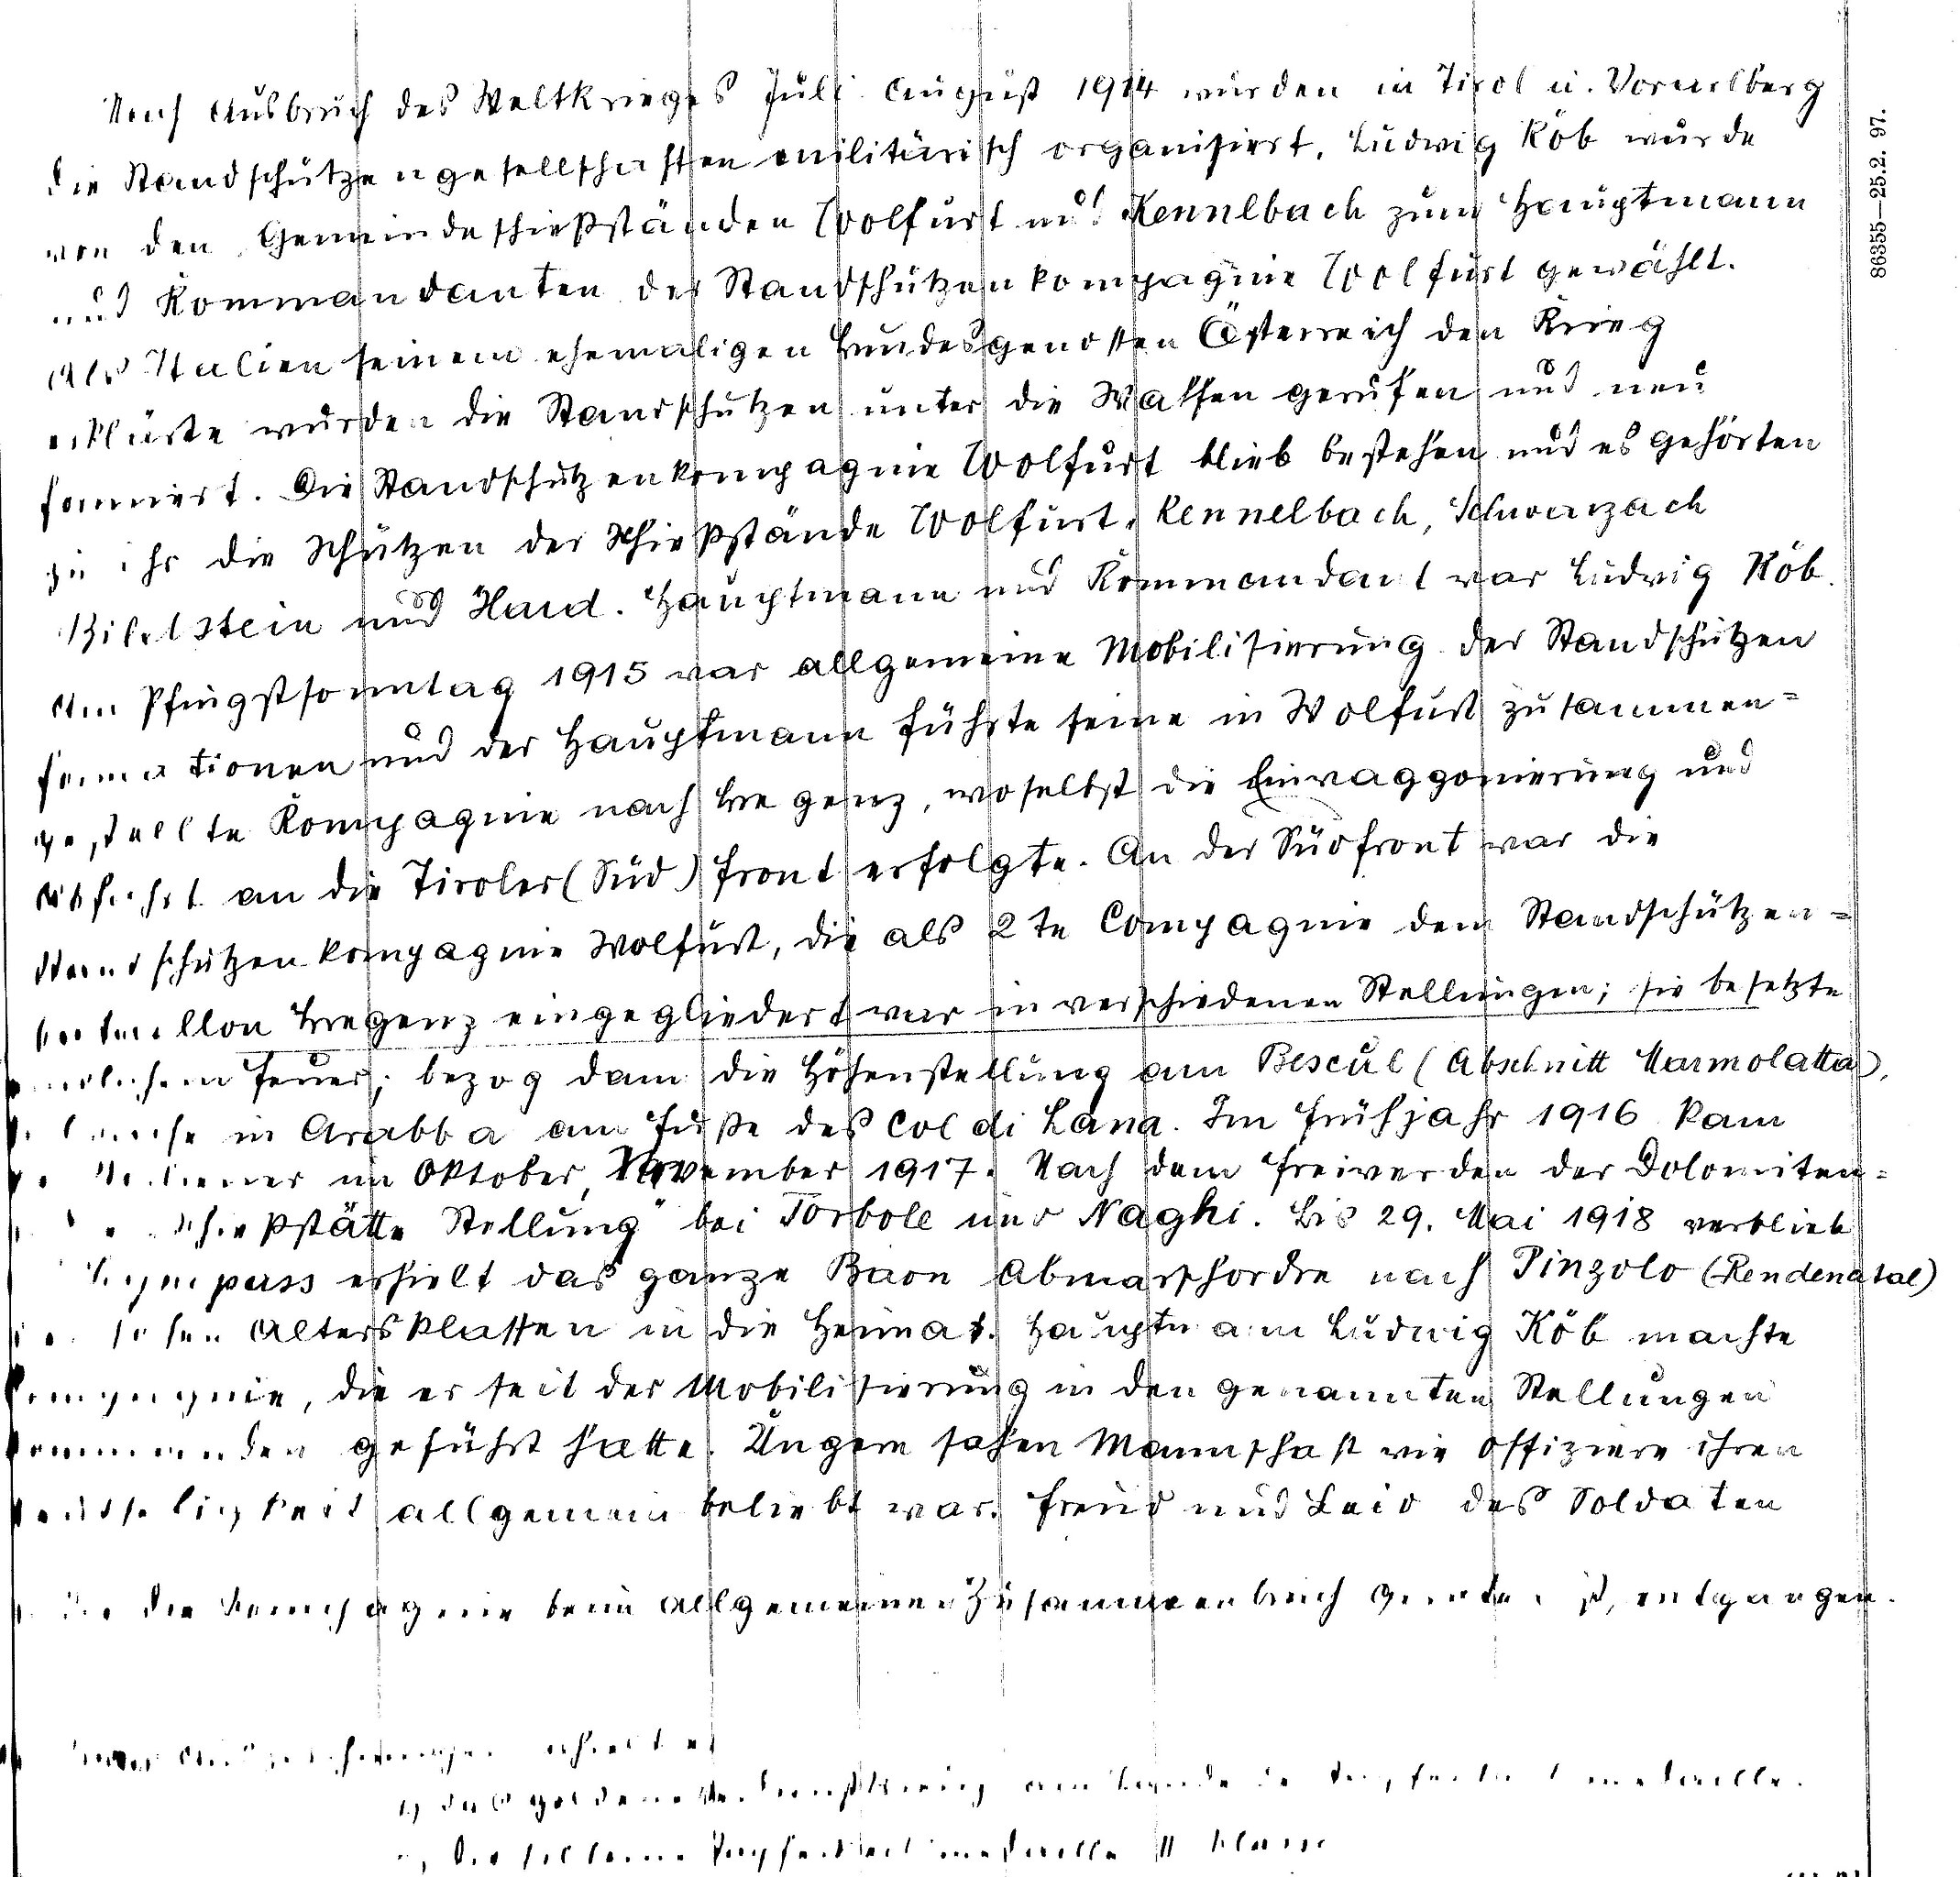 Nach Ausbruch des Weltkrieges Juli August 1914 wurden in Tirol u. Vorarlberg
die Standschützengesellschaften militärisch organisiert. Ludwig Köb wurde
von den Gemeindeschießständen Wolfurt und Kennelbach zum Hauptmann
und Kommandanten der Standschützenkompagnie Wolfurt gewählt.
Als Italien seinem ehemaligen Bundesgenossen Österreich den Krieg
erklärte wurden die Standschützen unter die Waffen gerufen und neu
formiert. Die Standschützenkompagnie Wolfurt blieb bestehen und es gehörten
zu ihr die Schützen der Schießstände Wolfurt, Kennelbach, Schwarzach
Bildstein und Hard. Hauptmann und Kommandant war Ludwig Köb.
Am Pfingstsonntag 1915 war allgemeine Mobilisierung der Standschützen
formationen und der Hauptmann führte seine in Wolfurt zusammen=
gestellte Kompagnie nach Bregenz, woselbst die Einwaggonierung und
Abfahrt an die Tiroler (Süd) front erfolgte. An der Südfront war die
Standschützenkompagnie Wolfurt, die als 2te Compagnie dem Standschützen=
bataillon Bregenz eingegliedert war in verschiedenen Stellungen; sie besetzte
Feuer; bezog dann die Höhenstellung am Bescul (Abschnitt Marmolatta),
in Arabba am Fuße des Col di Lana. Im Frühjahr 1916 kam
Italiener im Oktober, November 1917. Nach dem Freiwerden der Dolomiten=
Schießstätte Stellung" bei Torbole und Naghi. Bis 29. Mai 1918 verblieb
erhielt das ganze Baon Abmarschordre nach Pinzolo (Rendenatal)
Altersklassen in die Heimat. Hauptmann Ludwig Köb machte
Kompagnie, die er seit der Mobilisierung in den genannten Stellungen
geführt hatte. Ungern sahen Mannschaft wie Offiziere ihren
allgemein beliebt war. Freud und Leid des Soldaten
die Kompagnie beim allgemeinen Zusammenbruch geraten ist, entgangen.
erhielt er
1) das goldene Verdienstkreuz am Bande der Tapferkeitsmedaille.
die silberne Tapferkeitsmedaille II Klasse
86355—25.2. 97.